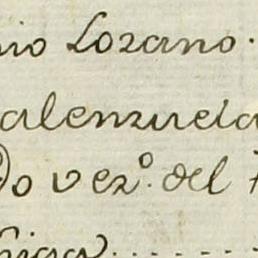 nio Lozano.
alenzuela
do vez.º del